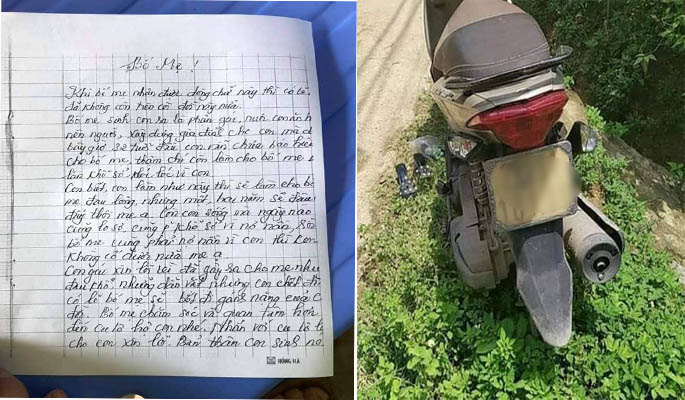 Bố Mẹ!
Khi bố mẹ nhận được dòng chữ này thì có lẽ
đã không còn trên cõi đời này nữa.
Bố mẹ sinh con ra là phận gái, nuôi con ăn h
nên người, xây dựng gia đình cho con mà đ
bây giờ số tuổi đầu con vẫn chưa báo hiếu
cho bố mẹ, thậm chí còn làm cho bố mẹ
khổ sở vì con
Con biết, con làm như này thì sẽ làm cho bố
mẹ đau lòng, nhưng một, hai năm sẽ đau
thôi mẹ ạ. Còn con sống mà ngày nào
cũng lo sợ, cũng khổ sở vì nợ nần, rồi
bố mẹ cũng phải nợ nần vì con thì con
không cố được nữa mẹ ạ.
Con gái xin lỗi vì đã gây ra cho mẹ nhiều
đau khổ, nhưng con chết đi
có lẽ bố mẹ sẽ bớt đi gánh nặng cuộc
đời. Bố mẹ chăm sóc và quan tâm hơn
đến cu hộ con nhé. Nhắn với cu
cho con xin lỗi. Bản thân con sinh ra
HỒNG HÀ